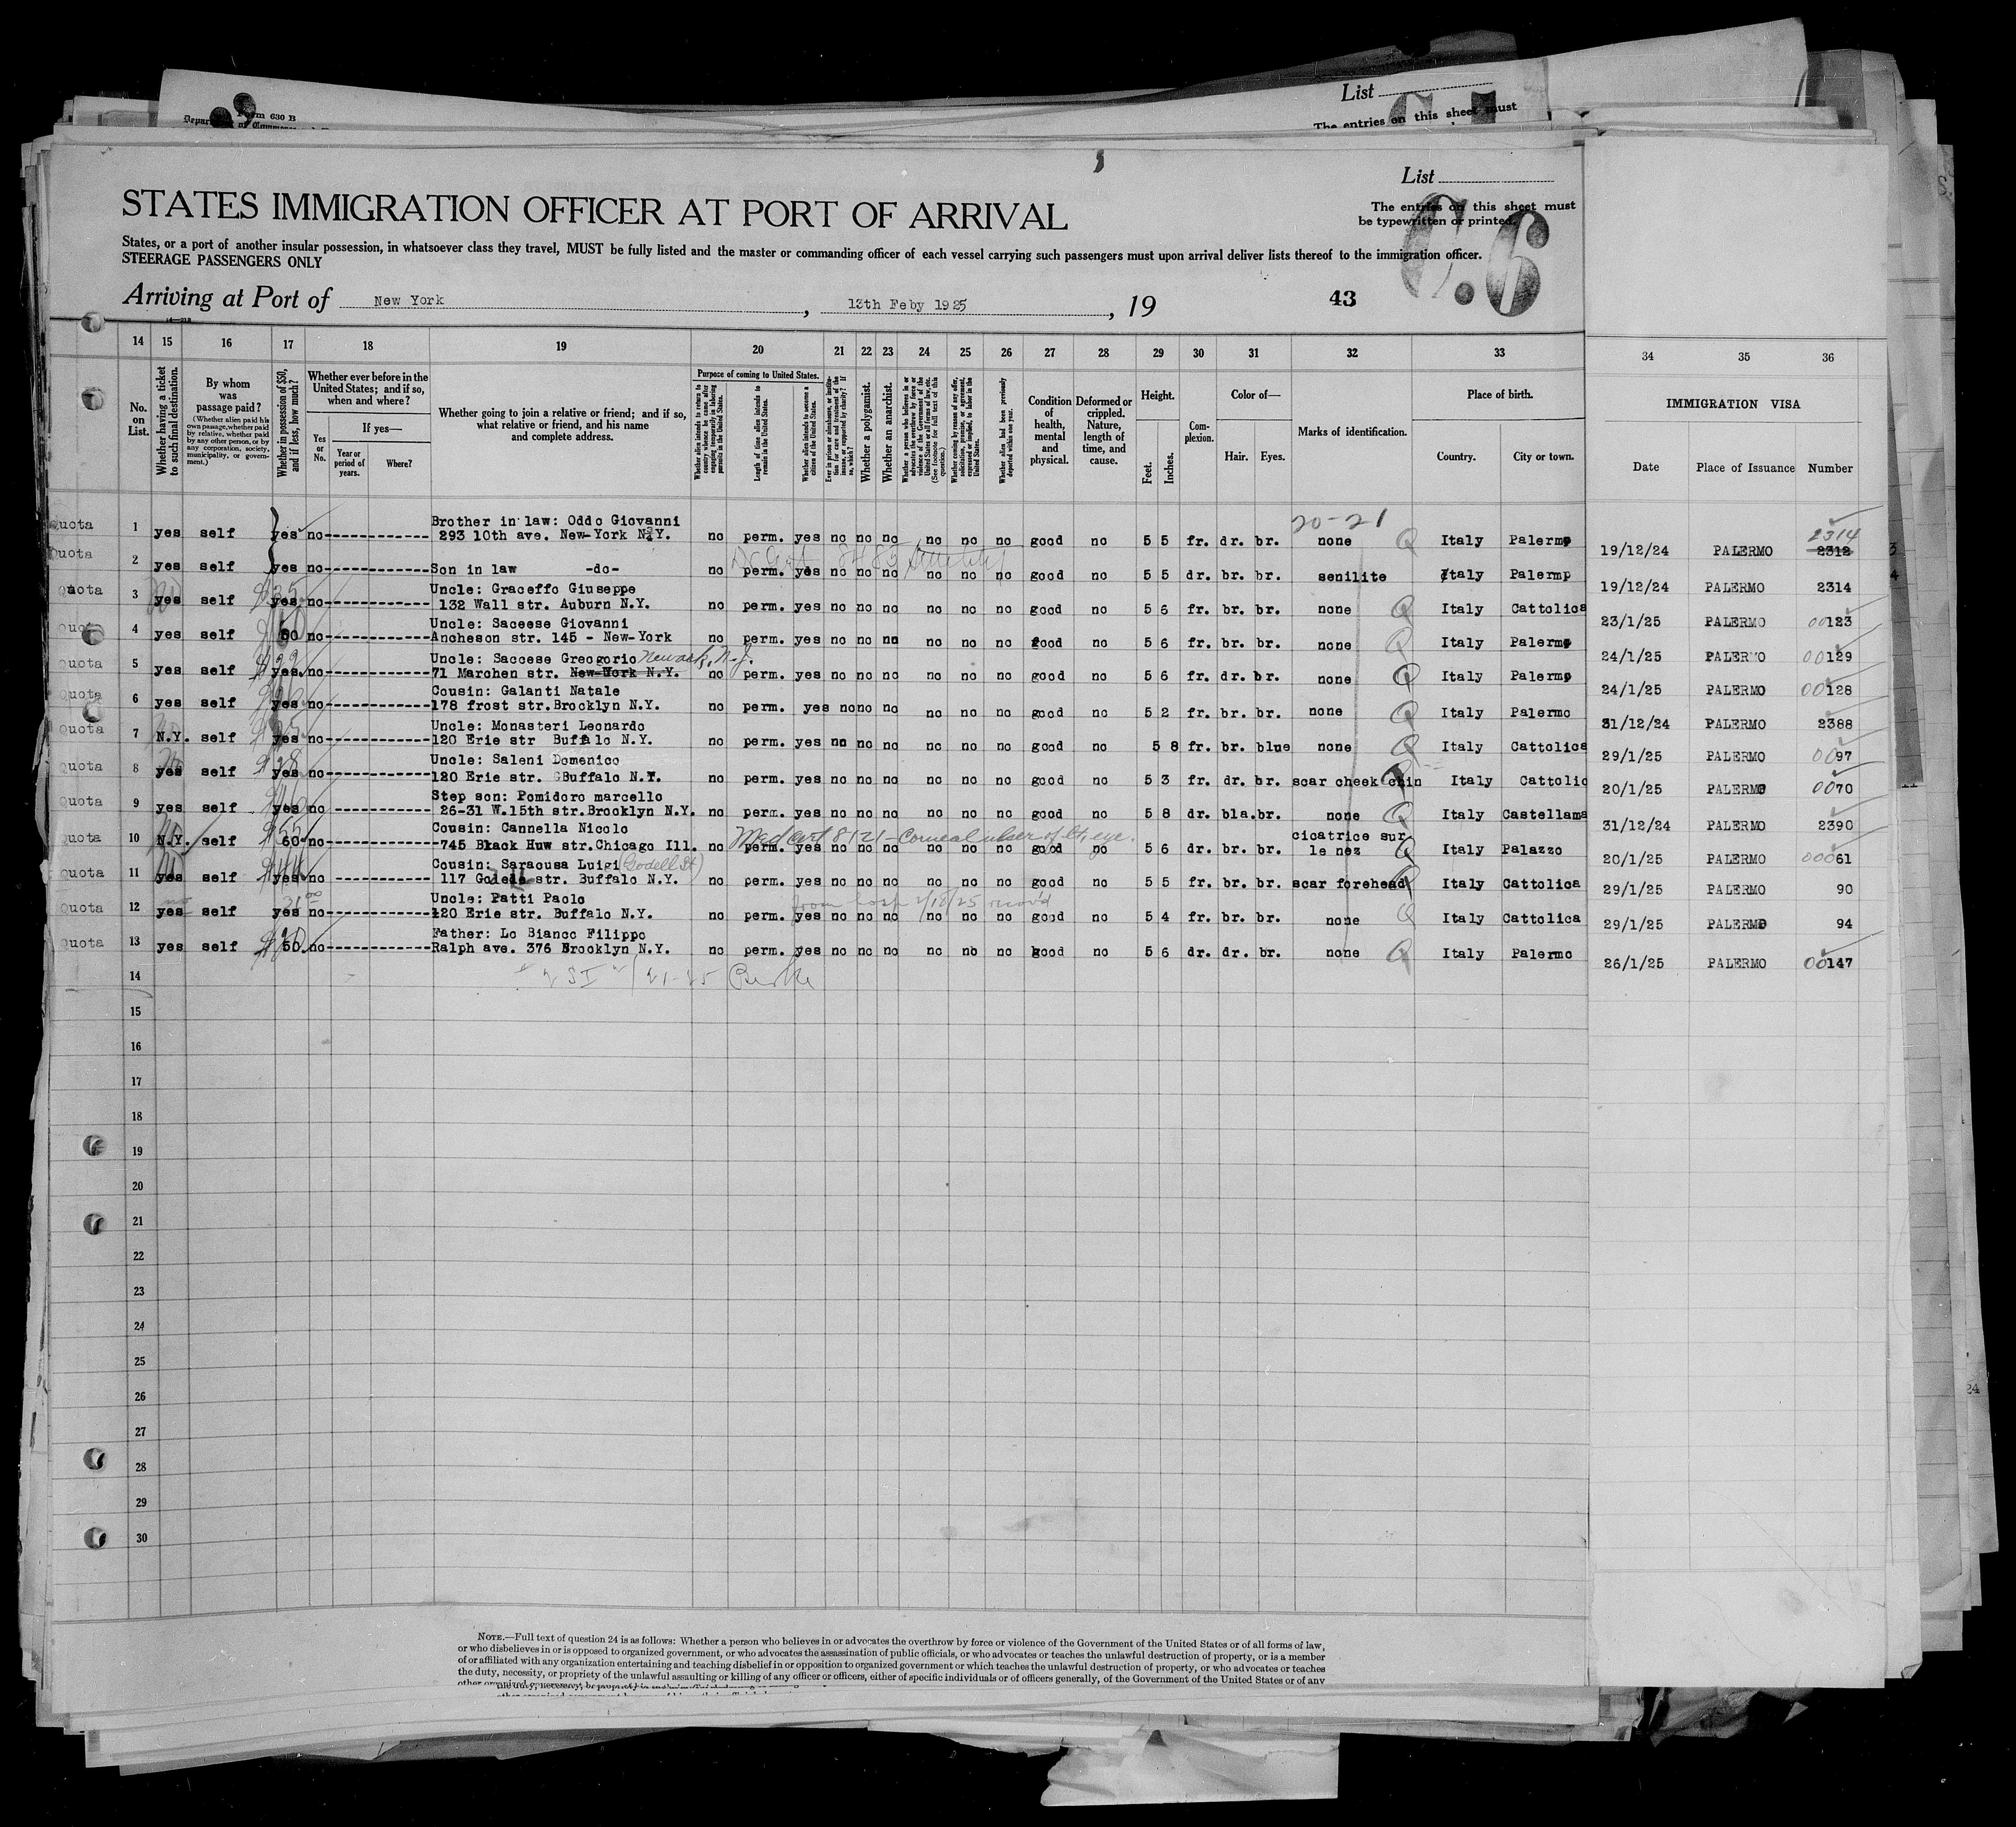 Form 630 B
List
The entries on this sheet must
List
STATES IMMIGRATION OFFICER AT PORT OF ARRIVAL
The entries on this sheet must
be typewritten or printed.
States, or a port of another insular possession, in whatsoever class they travel, MUST be fully listed and the master or commanding officer of each vessel carrying such passengers must upon arrival deliver lists thereof to the immigration officer.
STEERAGE PASSENGERS ONLY
Arriving at Port of New York, 13th Feby 1925, 19
43
14 15 16 17 18 19 20 21 22 23 24 25 26 27 28 29 30 31 32 33 34 35 36
No. on List.
Whether having a ticket to such final destination.
By whom was passage paid?
(Whether alien paid his own passage, whether paid by relative, whether paid by any other person, or by any corporation, society, municipality, or government.)
Whether in possession of $50, and if less, how much?
Whether ever before in the United States; and if so, when and where?
Yes or No.
If yes—
Year or period of years.
Where?
Whether going to join a relative or friend; and if so, what relative or friend, and his name and complete address.
Purpose of coming to United States.
Whether alien intends to return to country whence he came after engaging temporarily in laboring pursuits in the United States.
Length of time alien intends to remain in the United States.
Whether alien intends to become a citizen of the United States.
Whether a polygamist.
Whether an anarchist.
Condition of health, mental and physical.
Deformed or crippled. Nature, length of time, and cause.
Height.
Feet.
Inches.
Complexion.
Color of—
Hair.
Eyes.
Marks of identification.
Place of birth.
Country.
City or town.
IMMIGRATION VISA
Date
Place of Issuance
Number
20-21
Quota 1 yes self yes no Brother in law: Oddo Giovanni
293 10th ave. New-York N.Y. no perm. yes no no no no no no good no 5 5 fr. dr. br. none Q Italy Palermo 19/12/24 PALERMO 2312 2314
Quota 2 yes self yes no Son in law -do- no perm. yes no no no no no no good no 5 5 dr. br. br. senilite Italy Palermo 19/12/24 PALERMO 2314
Quota 3 yes self yes no Uncle: Graceffo Giuseppe
132 Wall str. Auburn N.Y. no perm. yes no no no no no no good no 5 6 fr. br. br. none Q Italy Cattolica 23/1/25 PALERMO 00123
Quota 4 yes self 50 no Uncle: Saceese Giovanni
Ancheson str. 145 - New-York no perm. yes no no no no no no good no 5 6 fr. br. br. none Q Italy Palermo 24/1/25 PALERMO 00129
Quota 5 yes self yes no Uncle: Saccese Greogorio Newark, N.J.
71 Marchen str. New-York N.Y. no perm. yes no no no no no no good no 5 6 fr. dr. br. none Q Italy Palermo 24/1/25 PALERMO 00128
Quota 6 yes self yes no Cousin: Galanti Natale
178 frost str. Brooklyn N.Y. no perm. yes no no no no no no good no 5 2 fr. br. br. none Q Italy Palermo 31/12/24 PALERMO 2388
Quota 7 N.Y. self yes no Uncle: Monasteri Leonardo
120 Erie str Buffalo N.Y. no perm. yes no no no no no no good no 5 8 fr. br. blue none Q Italy Cattolica 29/1/25 PALERMO 0097
Quota 8 yes self yes no Uncle: Saleni Domenico
120 Erie str. Buffalo N.Y. no perm. yes no no no no no no good no 5 3 fr. dr. br. scar cheek chin Italy Cattolic 20/1/25 PALERMO 0070
Quota 9 yes self yes no Step son: Pomidoro marcello
26-31 W.15th str. Brooklyn N.Y. no perm. yes no no no no no no good no 5 8 dr. bla. br. none Q Italy Castellama 31/12/24 PALERMO 2390
Med Cert 8121 - Corneal ulcer of lt. eye.
Quota 10 N.Y. self 50 no Cousin: Cannella Nicolo
745 Black Huw str. Chicago Ill. no perm. yes no no no no no no good no 5 6 dr. br. br. cicatrice sur le nez Q Italy Palazzo 20/1/25 PALERMO 00061
Quota 11 yes self yes no Cousin: Saracusa Luigi (Goodell St)
117 str. Buffalo N.Y. no perm. yes no no no no no no good no 5 5 fr. br. br. scar forehead Italy Cattolica 29/1/25 PALERMO 90
Quota 12 yes self yes no Uncle: Patti Paolo
120 Erie str. Buffalo N.Y. no perm. yes no no no no no no good no 5 4 fr. br. br. none Q Italy Cattolica 29/1/25 PALERMO 94
Quota 13 yes self 50 no Father: Lo Bianco Filippo
Ralph ave. 376 Brooklyn N.Y. no perm. yes no no no no no no good no 5 6 dr. dr. br. none Q Italy Palermo 26/1/25 PALERMO 00147
14
15
16
17
18
19
20
21
22
23
24
25
26
27
28
29
30
NOTE.—Full text of question 24 is as follows: Whether a person who believes in or advocates the overthrow by force or violence of the Government of the United States or of all forms of law,
or who disbelieves in or is opposed to organized government, or who advocates the assassination of public officials, or who advocates or teaches the unlawful destruction of property, or is a member
of or affiliated with any organization entertaining and teaching disbelief in or opposition to organized government or which teaches the unlawful destruction of property, or who advocates or teaches
the duty, necessity, or propriety of the unlawful assaulting or killing of any officer or officers, either of specific individuals or of officers generally, of the Government of the United States or of any